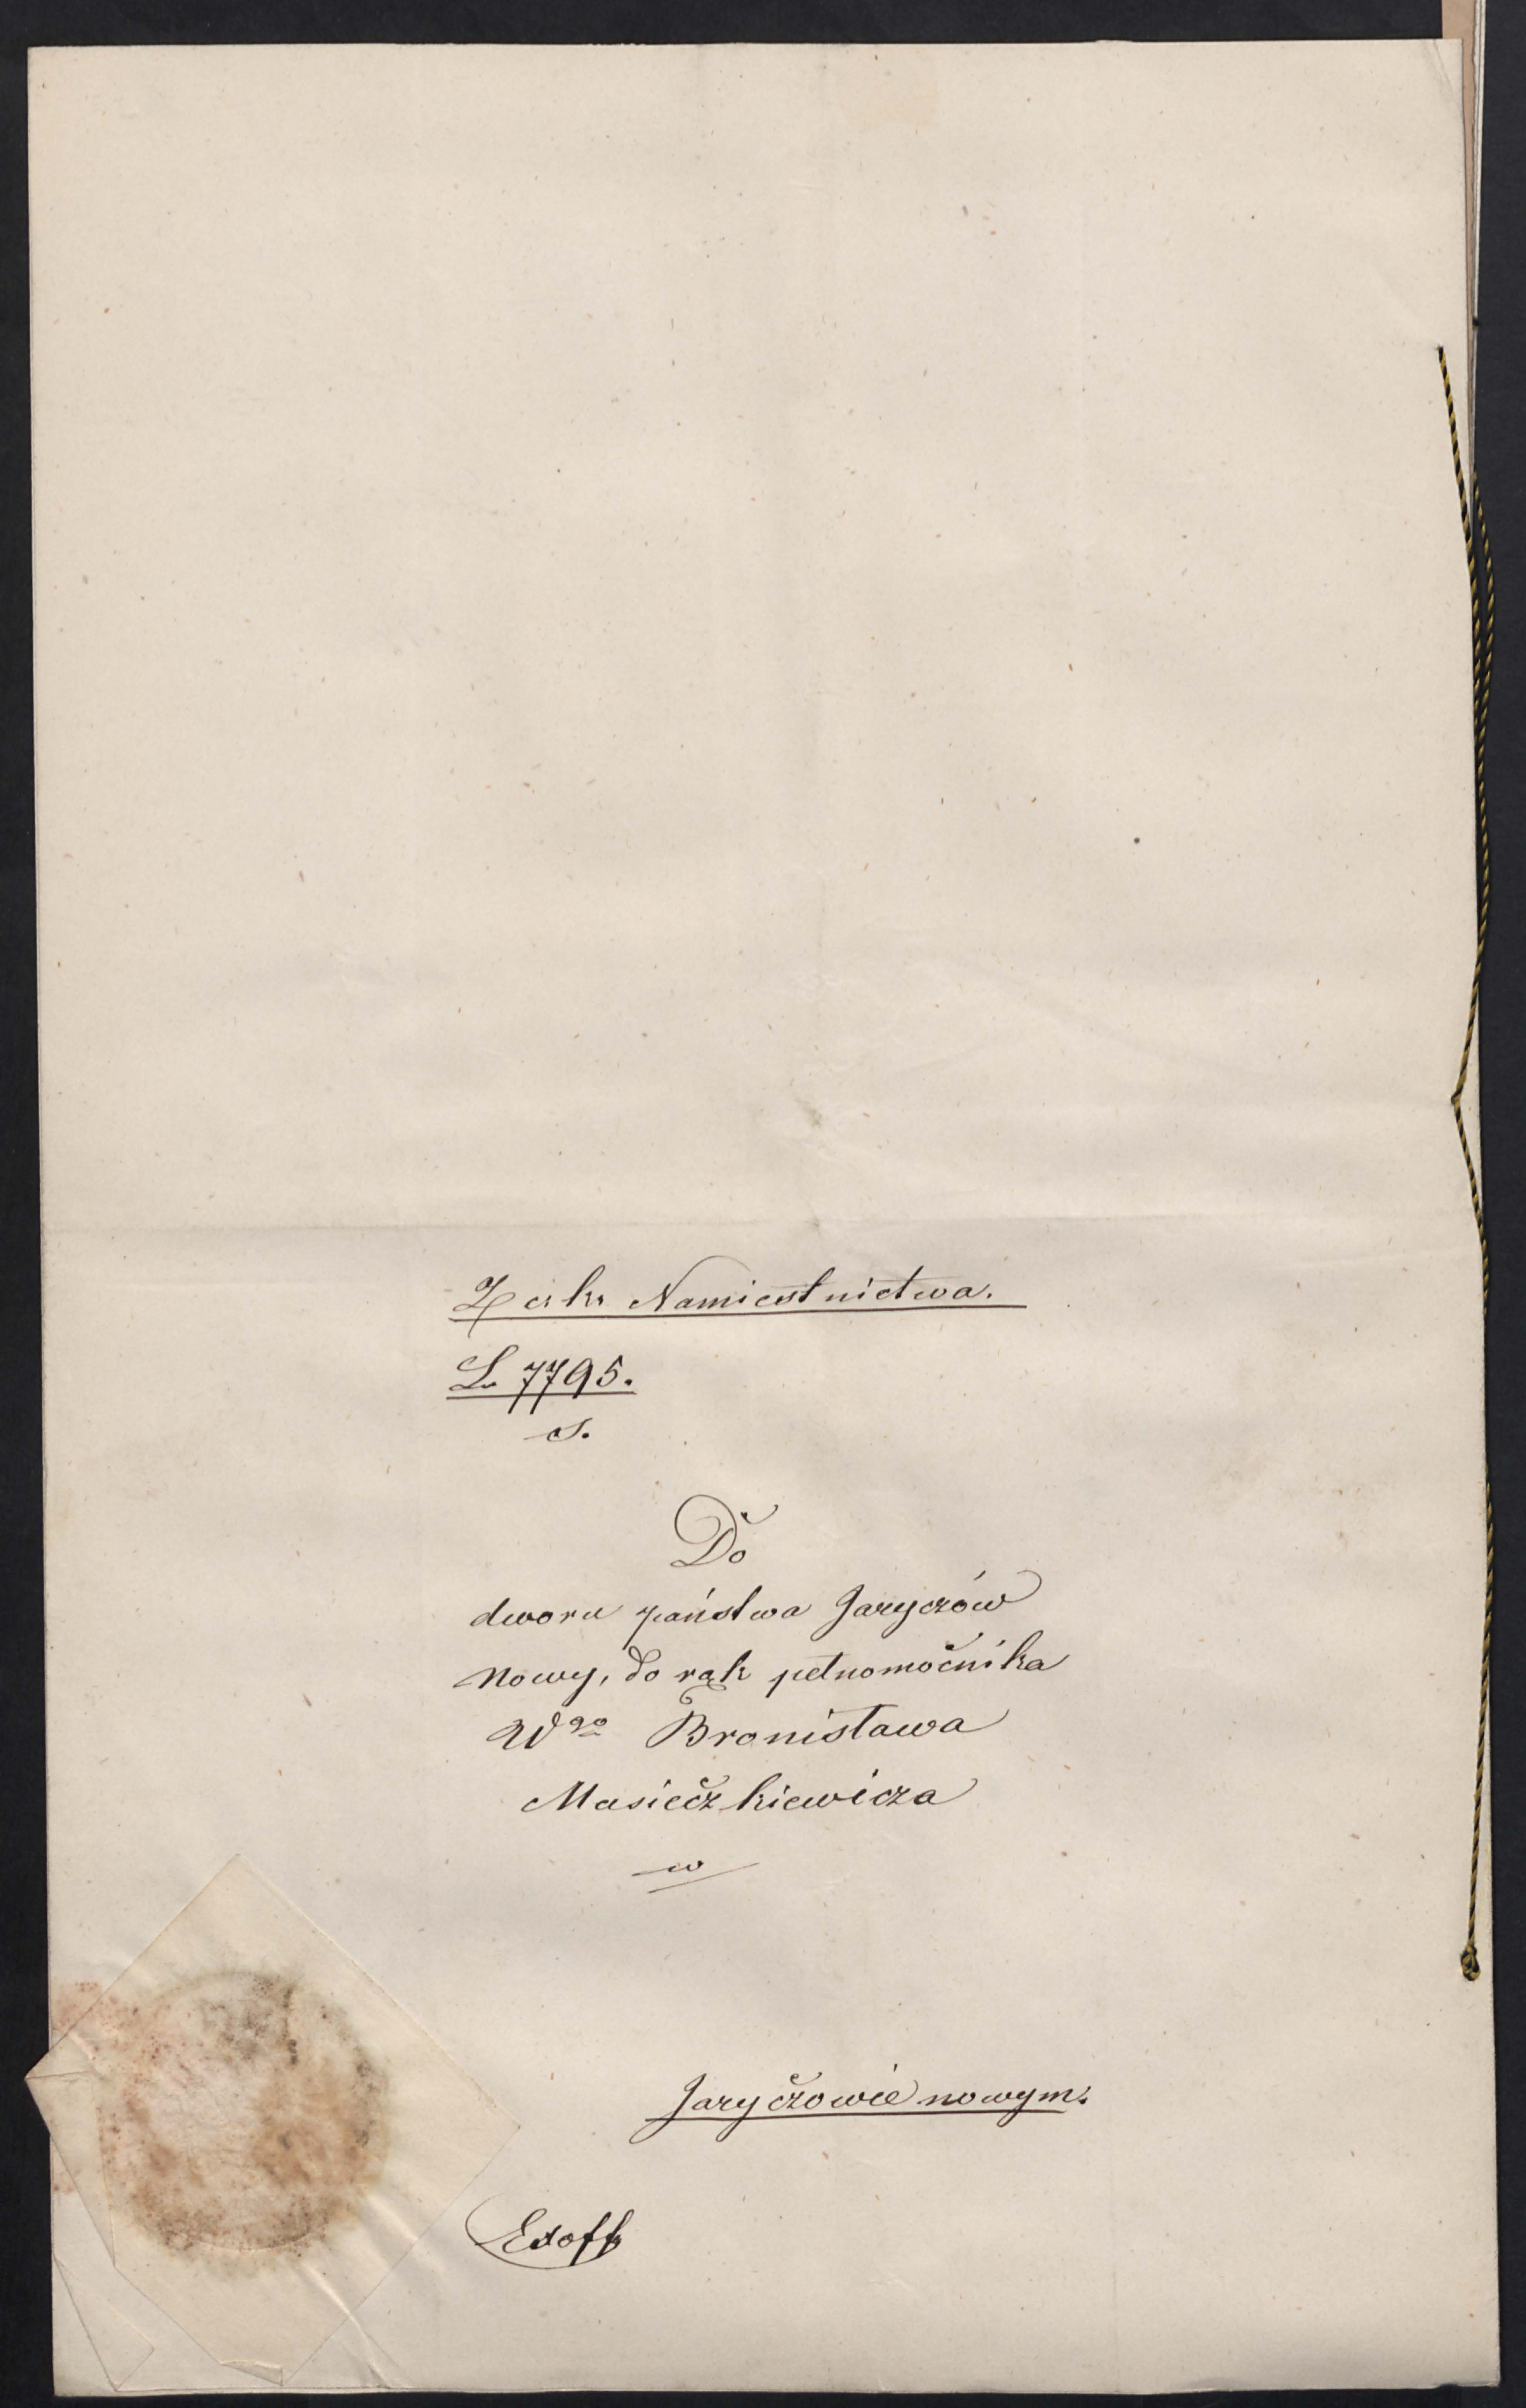 Z c. k. Namiestnictwa.
L. 7795.
S.
Do
dworu państwa Jaryczów
nowy, do rąk pełnomocnika
Wgo Bronisława
Masieczkiewicza
w
Jaryczowie nowym.
Exoff